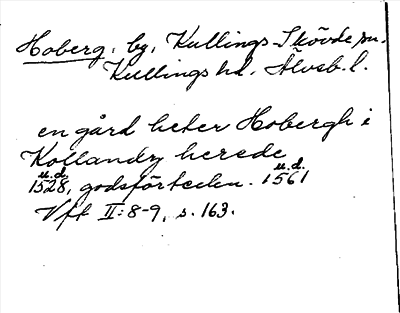 Hoberg, by, Kullings-Skövde sn.
Kullings hd. Älvsb. l.
en gård heter Hobergh i
Kollandz herede
u.d. u.d.
1528, godsförteckn. 1561
Vft II:8-9, s. 163.